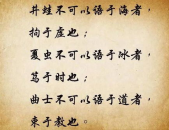 井蛙不可以语于海者，
拘于虚也；
夏虫不可以语于冰者，
笃于时也；
曲士不可以语于道者，
束于教也。